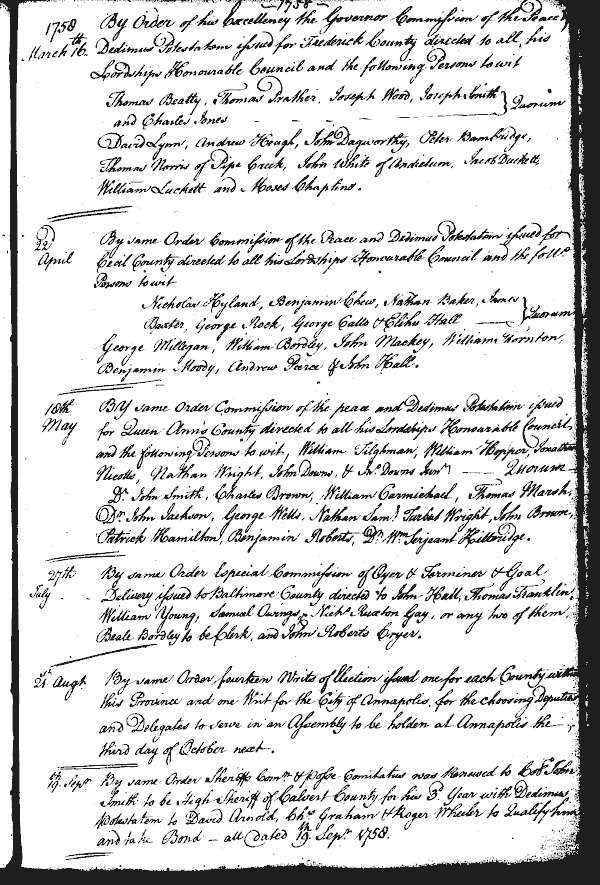 1758
1758 By Order of his Excellency the Governor Commission of the Peace &
March 16th. Dedimus Potestatem issued for Frederick County directed to all, his
Lordships Honourable Council and the following Persons to wit
Thomas Beatty, Thomas Prather, Joseph Wood, Joseph Smith
and Charles Jones } Quorum
David Lynn, Andrew Heugh, John Dagworthy, Peter Bambridge,
Thomas Norris of Pipe Creek, John White of Andietum, Jacob Duckett
William Luckett and Moses Chapline.
22d April By same Order Commission of the Peace and Dedimus Potestatem issued for
Cecil County directed to all his Lordships Honourable Council and the follg.
Persons to wit
Nicholas Hyland, Benjamin Chew, Nathan Baker, James
Baxter, George Rock, George Catto & Elihu Hall } Quorum
George Millegan, William Bordley, John Mackey, William Thornton,
Benjamin Moody, Andrew Peirce & John Hall.
18th May BY same Order Commission of the peace and Dedimus Potestatem issued
for Queen Ann's County directed to all his Lordships Honourable Council
and the following Persons to wit, William Tilghman, William Hopper, Jonathan
Nicolls, Nathan Wright, John Downs, & Jno. Downs Junr } Quorum
Dr. John Smith, Charles Brown, William Carmichael, Thomas Marsh,
Dr. John Jackson, George Wells, Nathan Saml. Turbut Wright, John Brown,
Patrick Hamilton, Benjamin Roberts, Dr. Wm. Serjeant Kittridge.
27th July By same Order Especial Commission of Oyer & Terminer & Goal
Delivery issued to Baltimore County directed to John Hall, Thomas Franklin
William Young, Samuel Owings, Nichs. Ruxton Gay, or any two of them
Beale Bordley to be Clerk, and John Roberts Cryer.
21st Augt. By same Order, fourteen Writs of Election issued one for each County within
this Province and one Writ for the City of Annapolis, for the choosing Deputies
and Delegates to serve in an Assembly to be holden at Annapolis the
third day of October next.
19th Sepr. By same Order Sheriffs Comn. & Posse Comitatus was Renewed to John
Smith to be High Sheriff of Calvert County for his 3d Year with Dedimus
Potestatem to David Arnold, Chs. Graham & Roger Wheeler to Qualify him
and take Bond - all dated 19th. Sepr. 1758.